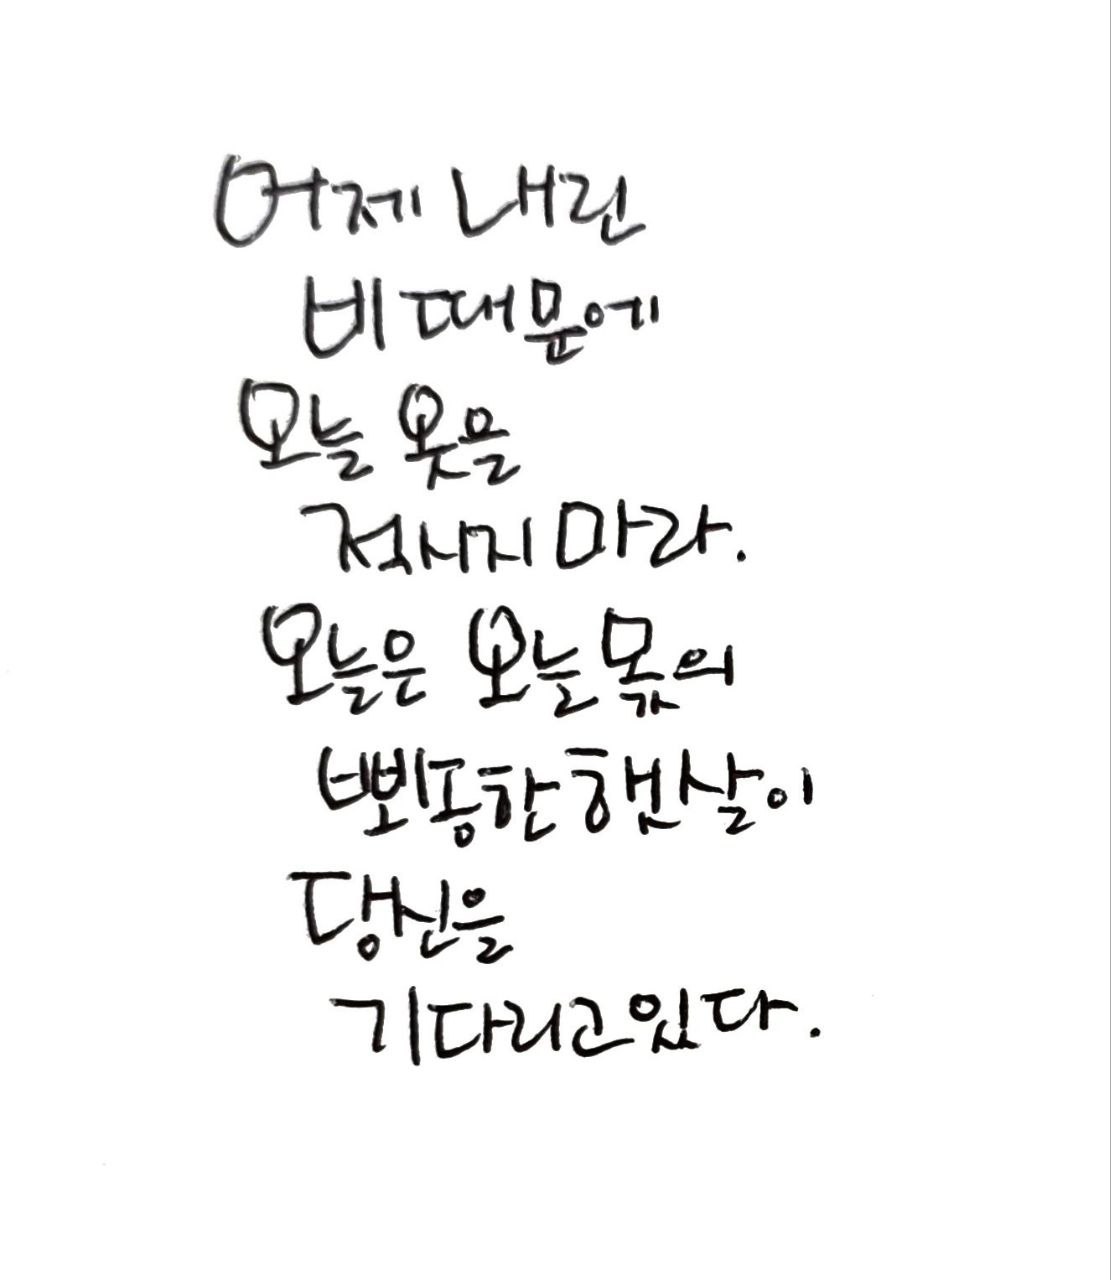 어제 내린
비 때문에
오늘 옷을
적시지 마라.
오늘은 오늘 몫의
뽀송한 햇살이
당신을
기다리고 있다.